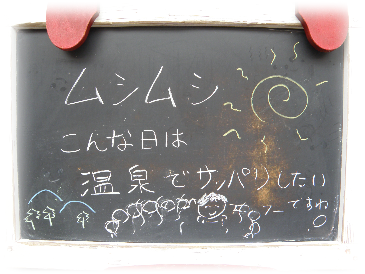 ムシムシ
こんな日は
温泉でサッパリしたい
ですね